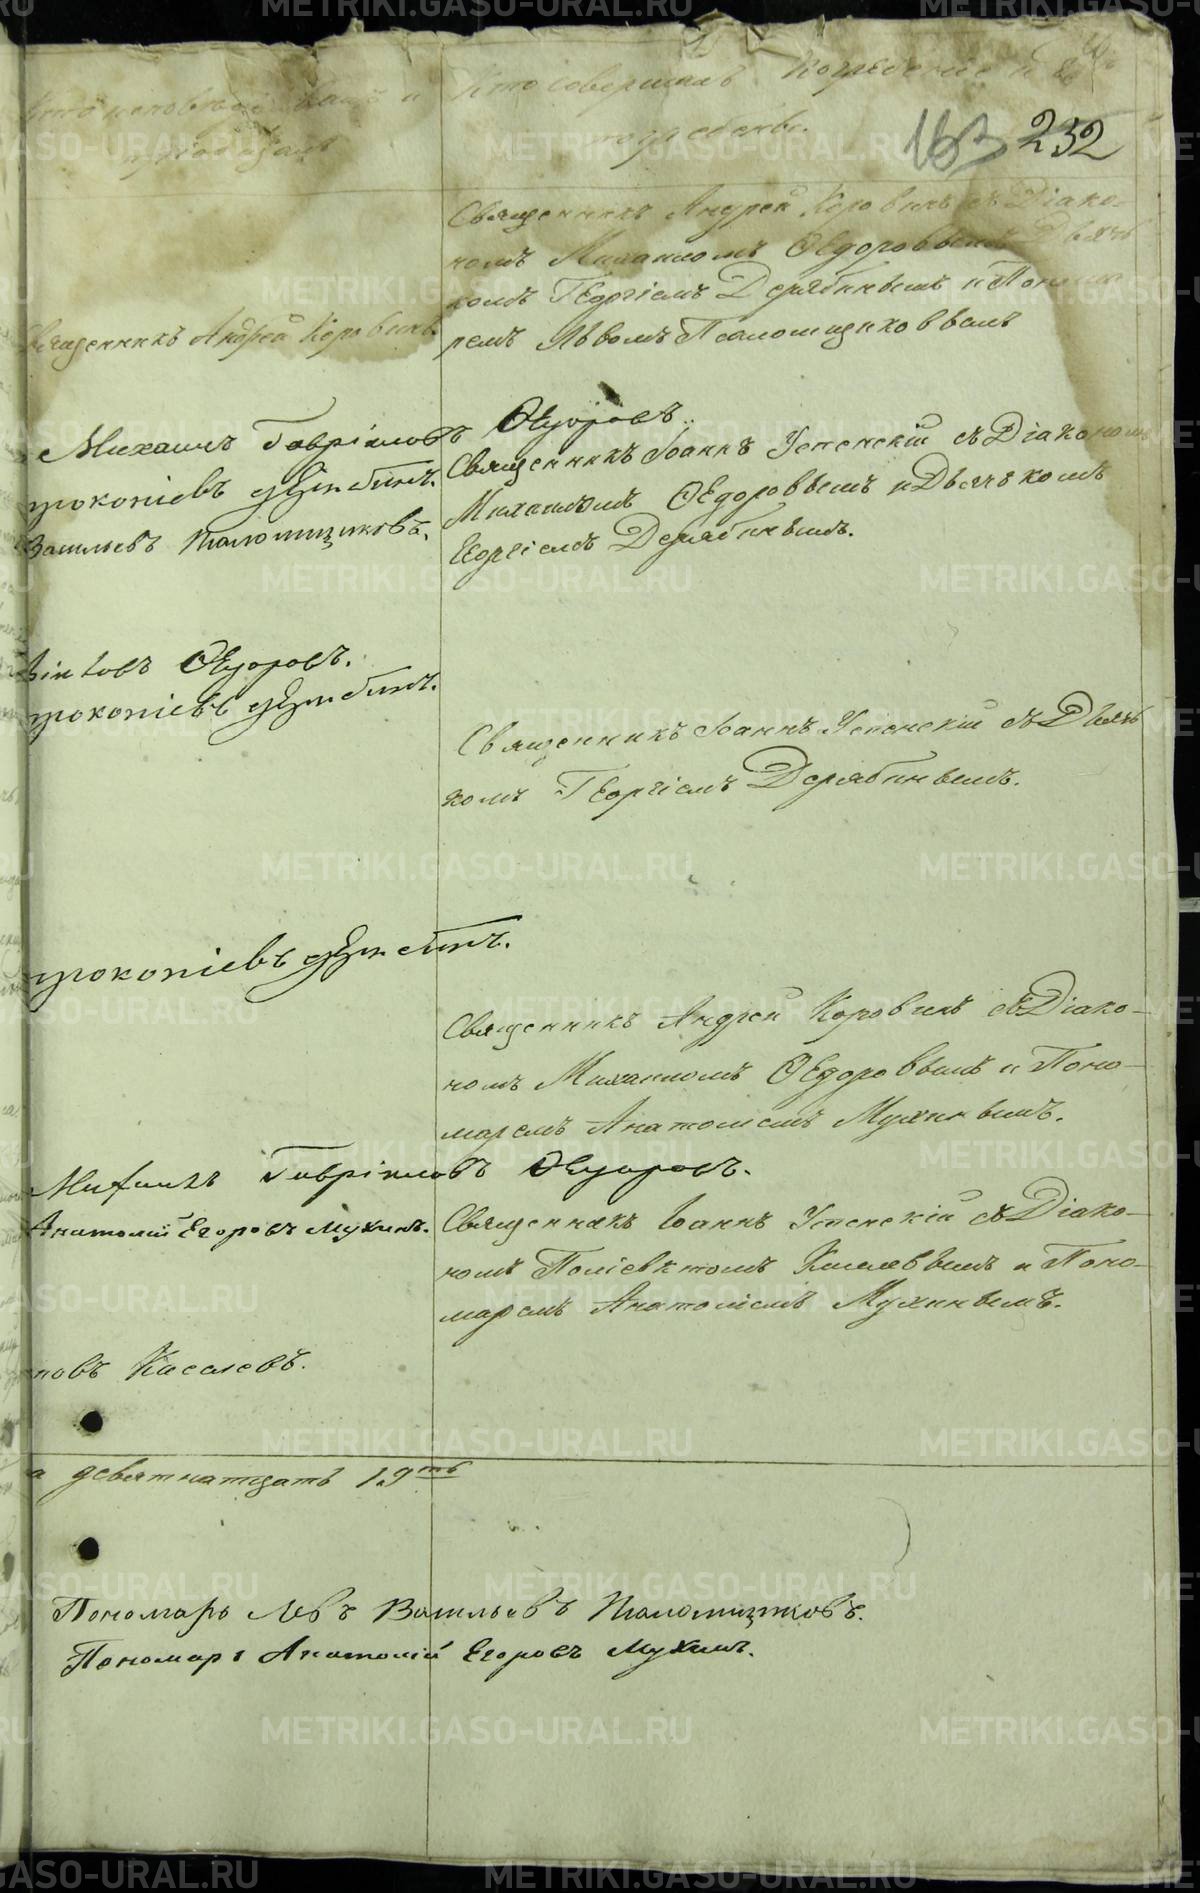 Кто исповѣдывалъ и
пріобщалъ
Кто совершалъ погребеніе и гдѣ
погребены.
163 232
Священникъ Андрей Коровинъ съ Діако-
номъ Михаиломъ Ѳедоровымъ Дьяч
комъ Георгіемъ Дерябинымъ и Понома
ремъ Львомъ Псаломщиковымъ
Священникъ Андрей Коровинъ
Михаилъ Гавріиловъ Ѳедоровъ.
прокопіевъ Дерябинъ.
Васильевъ Псаломщиковъ.
Священникъ Іоаннъ Успенскій съ Діакономъ
Михаиломъ Ѳедоровымъ и Дьячкомъ
Георгіемъ Дерябинымъ.
ріиловъ Ѳедоровъ.
прокопіевъ Дерябинъ.
Священникъ Іоаннъ Успенскій съ Дьяч
комъ Георгіемъ Дерябинымъ.
прокопіевъ Дерябинъ.
Священникъ Андрей Коровинъ съ Діако-
номъ Михаиломъ Ѳедоровымъ и Поно-
маремъ Анатоліемъ Мухинымъ.
Михаилъ Гавріиловъ Ѳедоровъ.
Анатолій Егоровъ Мухинъ.
Священникъ Іоаннъ Успенскій съ Діако-
номъ Поліевктомъ Киселевымъ и Поно-
маремъ Анатоліемъ Мухинымъ.
новъ Киселевъ.
а девятнатцать 19ть
Пономарь Левъ Васильевъ Псаломщиковъ.
Пономарь Анатолій Егоровъ Мухинъ.
METRIKI.GASO-URAL.RU